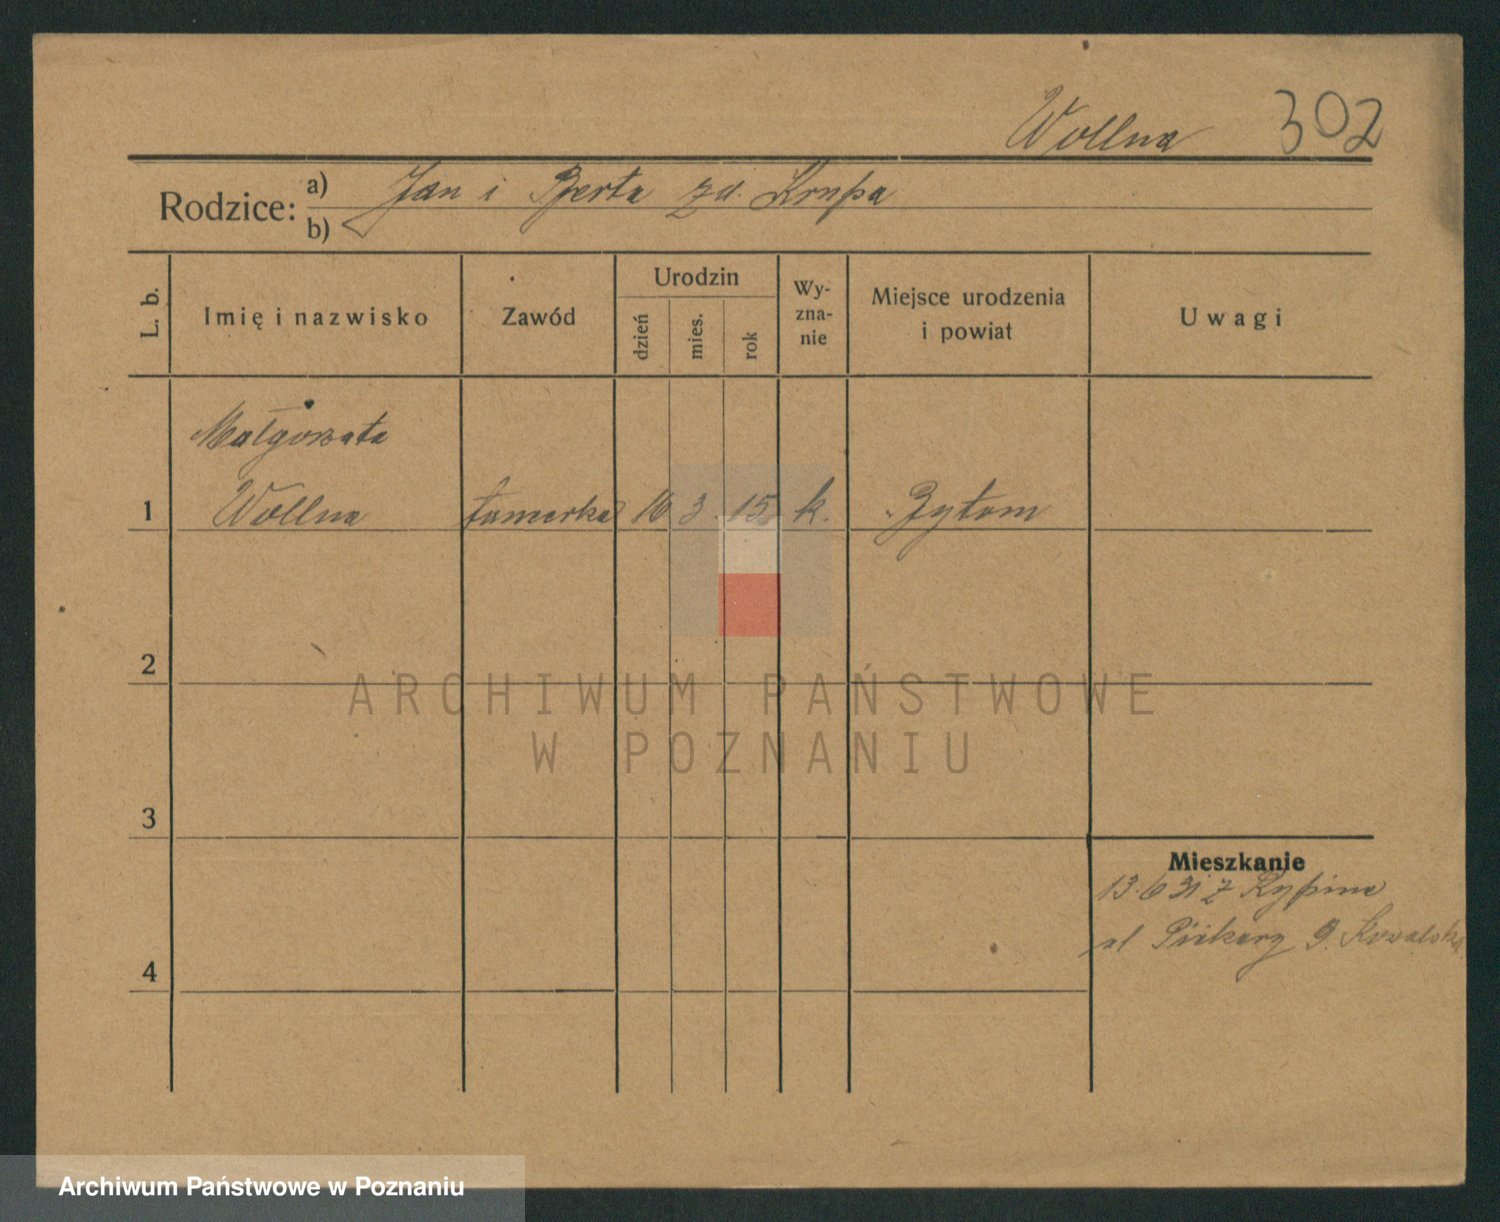 Wollna 302
Rodzice: a) Jan i Berta zd. Krupa
b)
L. b.
Imię i nazwisko
Zawód
Urodzin
dzień
mies.
rok
Wy-
zna-
nie
Miejsce urodzenia
i powiat
Uwagi
Małgorzata
1 Wollna 16 3 15 k. Bytom
2
ARCHIWUM PAŃSTWOWE
W POZNANIU
3
4
Mieszkanie
13.6 31 z Rypina
ul Piekary 9. Kowalska
Archiwum Państwowe w Poznaniu